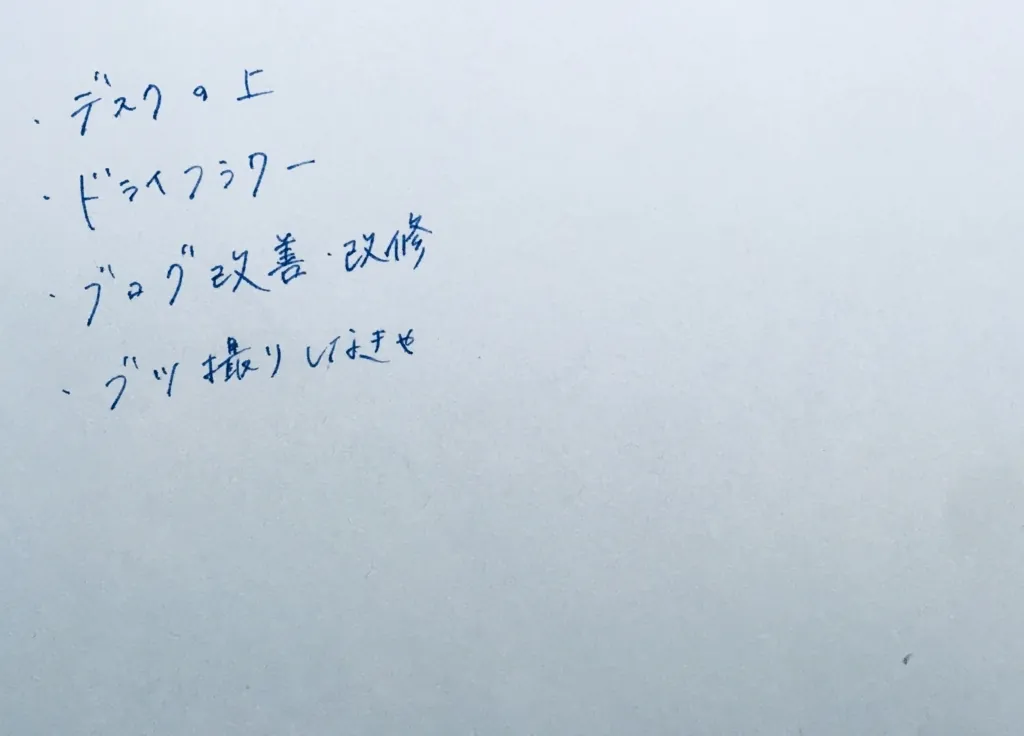 ・デスクの上
・ドライフラワー
・ブログ改善・改修
・ブツ撮りしなきゃ